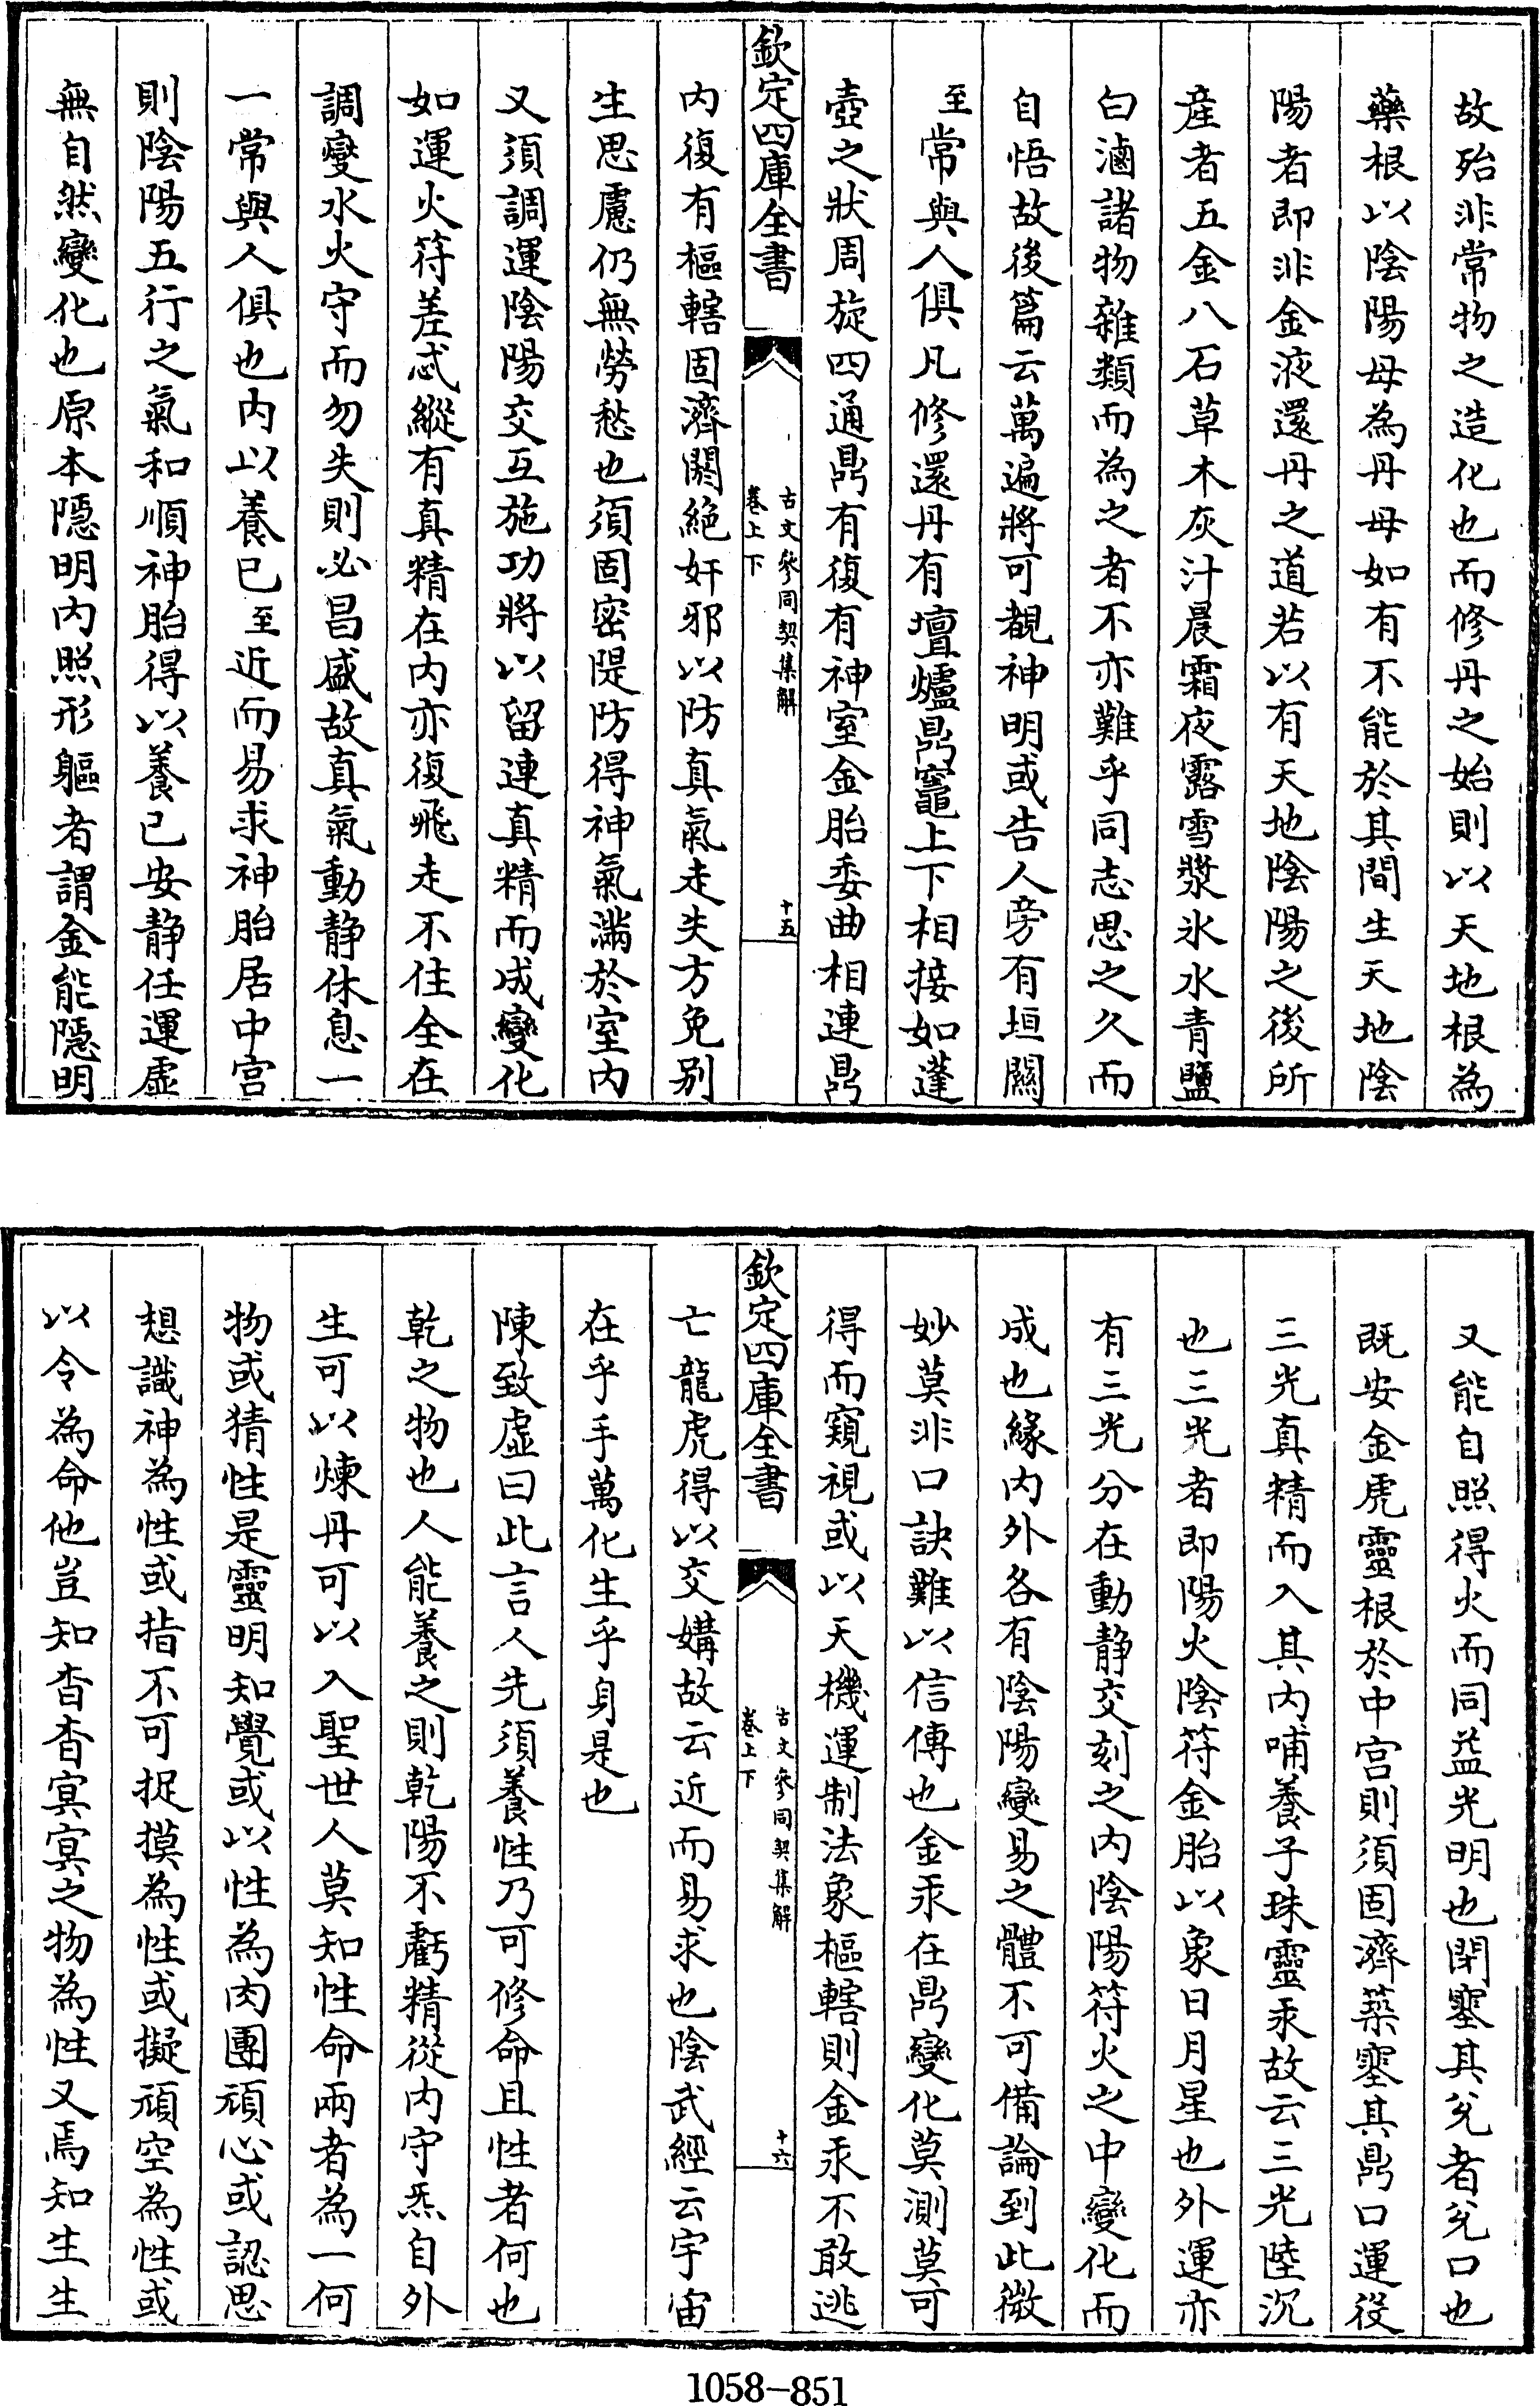 故殆非常物之造化也而修丹之始則以天地根為
藥根以陰陽母為丹母如有不能於其間生天地陰
陽者即非金液還丹之道若以有天地陰陽之後所
産者五金八石草木灰汁晨霜夜露雪漿氷水青鹽
白滷諸物雜類而為之者不亦難乎同志思之久而
自悟故後篇云萬遍將可覩神明或告人旁有垣闕
至常與人俱凡修還丹有壇爐鼎竈上下相接如蓬
壺之狀周旋四通鼎有復有神室金胎委曲相連鼎
欽定四庫全書
古文參同契集解
卷上下
十五
内復有樞轄固濟閼絶奸邪以防真氣走失方免别
生思慮仍無勞愁也須固密隄防得神氣滿於室内
又須調運陰陽交互施功將以留連真精而成變化
如運火符差忒縱有真精在内亦復飛走不住全在
調燮水火守而勿失則必昌盛故真氣動静休息一
一常與人俱也内以養已至近而易求神胎居中宫
則陰陽五行之氣和順神胎得以養已安静任運虚
無自然變化也原本隱明内照形軀者謂金能隱明
又能自照得火而同益光明也閉塞其兊者兊口也
既安金虎靈根於中宫則須固濟築塞其鼎口運役
三光真精而入其内哺養子珠靈汞故云三光陸沉
也三光者即陽火陰符金胎以象日月星也外運亦
有三光分在動静交刻之内陰陽符火之中變化而
成也緣内外各有陰陽變易之體不可備論到此微
妙莫非口訣難以信傳也金汞在鼎變化莫測莫可
得而窺視或以天機運制法象樞轄則金汞不敢逃
欽定四庫全書
古文參同契集解
卷上下
十六
亡龍虎得以交媾故云近而易求也陰武經云宇宙
在乎手萬化生乎身是也
陳致虚曰此言人先須養性乃可修命且性者何也
乾之物也人能養之則乾陽不虧精從内守炁自外
生可以煉丹可以入聖世人莫知性命兩者為一何
物或猜性是靈明知覺或以性為肉團頑心或認思
想識神為性或指不可捉摸為性或擬頑空為性或
以令為命他豈知杳杳冥冥之物為性又焉知生生
1058-851